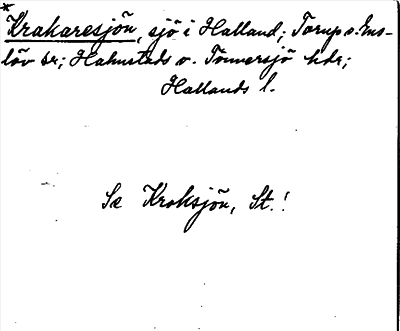 *
Krakaresjön, sjö i Halland; Torup o. Ens-
löv sr; Halmstads o. Tönnersjö hdr;
Hallands l.
Se Kroksjön, St.!